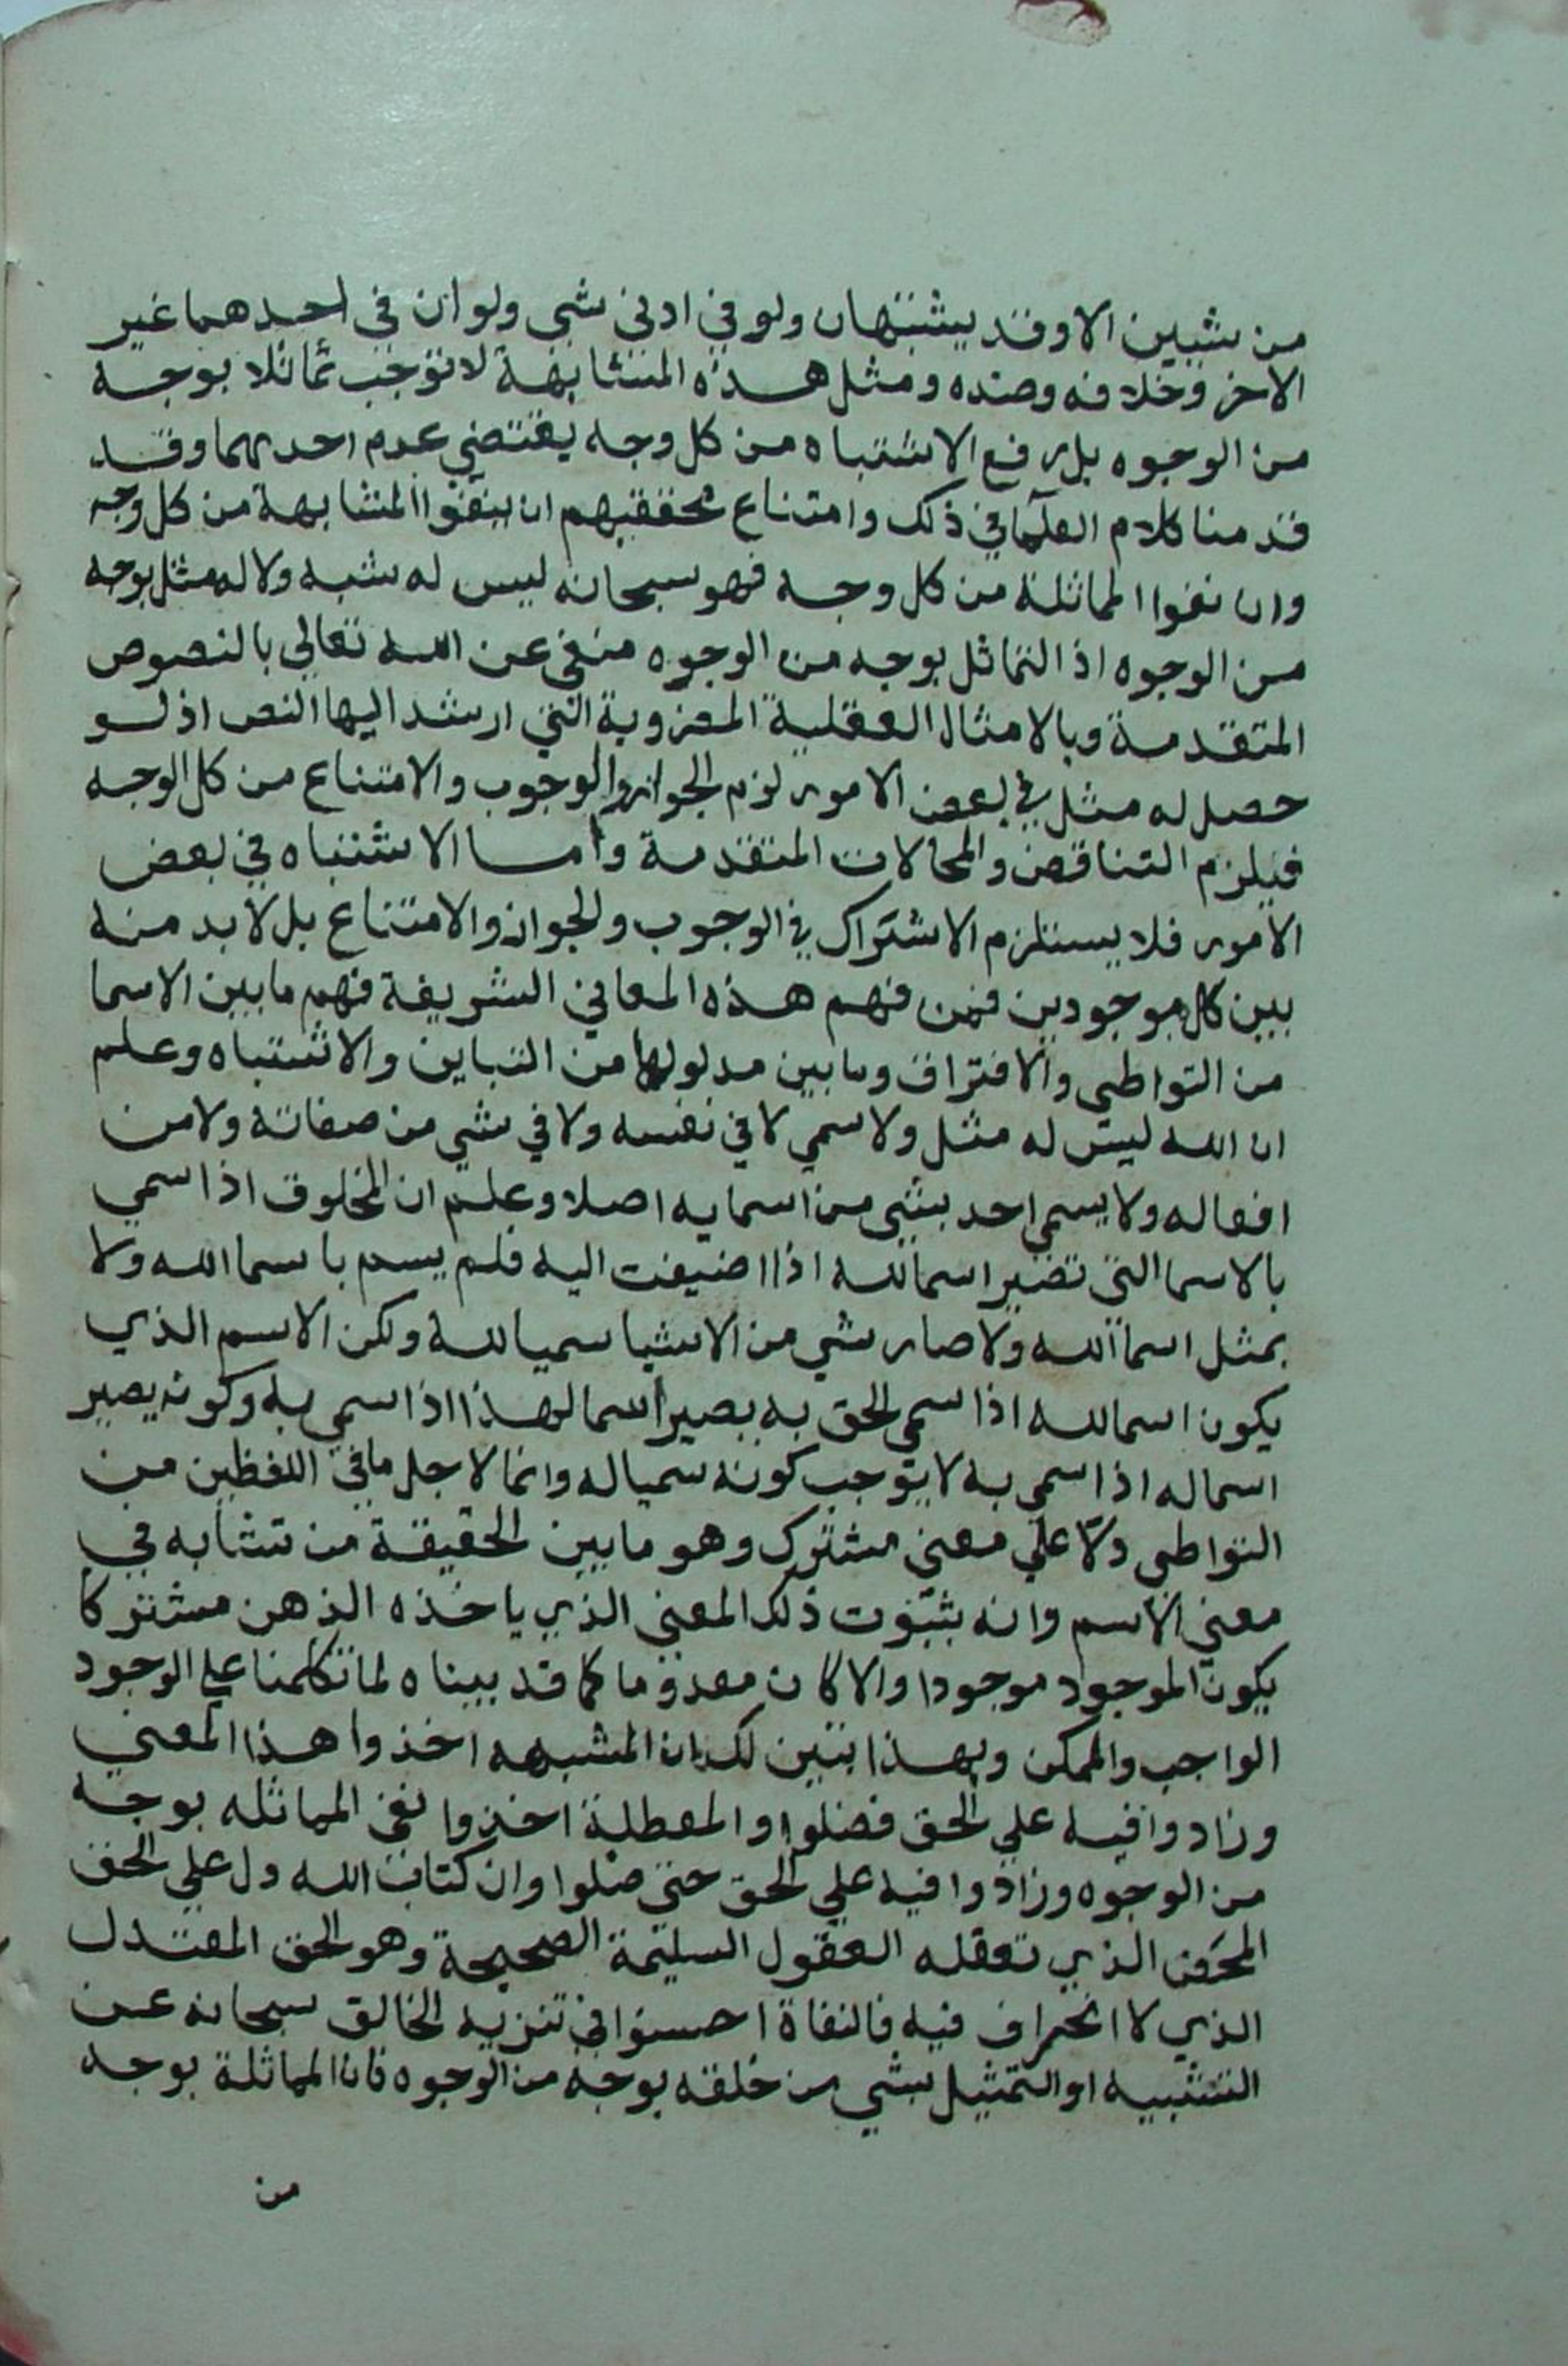 من شيين الا وقد يشتبهان ولو في ادني شي ولو ان في احدهما غير
الاخر وخلافه وضده ومثل هذه المتشابهة لا توجب تماثلا بوجه
من الوجوه بل رفع الاشتباه من كل وجه يقتضي عدم احدهما وقد
قدمنا كلام العلما في ذلك وامتناع محققيهم ان ينفوا المشابهة من كل وجه
وان نفوا المماثلة من كل وجه فهو سبحانه ليس له شبه ولا له مثل بوجه
من الوجوه اذ التماثل بوجه من الوجوه منفي عن الله تعالي بالنصوص
المتقدمة وبالامثال العقلية المضروبة التي ارشد اليها النص اذ لو
حصل له مثل في بعض الامور لزم الجواز والوجوب والامتناع من كل الوجه
فيلزم التناقض والمحالات المتقدمة واما الاشتباه في بعض
الامور فلا يستلزم الاشتراك في الوجوب والجواز والامتناع بل لا بد منه
بين كل موجودين فمن فهم هذه المعاني الشريفة فهم ما بين الاسما
من التواطي والافتراق وما بين مدلولها من التباين والاشتباه وعلم
ان الله ليس له مثل ولا سمي لا في نفسه ولا في شي من صفاته ولا من
افعاله ولا يسمي احد بشي من اسمايه اصلا وعلم ان المخلوق اذا سمي
بالاسما التي تصير اسما لله اذا اضيفت اليه فلم يسم باسما الله ولا
بمثل اسما الله ولا صار شي من الاشيا سميا لله ولكن الاسم الذي
يكون اسما لله اذا سمي الحق به يصير اسما لهذا اذا سمي به وكونه يصير
اسما له اذا سمي به لا يوجب كونه سميا له وانما لاجل ما في اللفظين من
التواطي دلا علي معني مشترك وهو ما بين الحقيقة من تشابه في
معني الاسم وانه بثبوت ذلك المعني الذي ياخذه الذهن مشتركا
يكون الموجود موجودا والا كان معدوما كما قد بيناه لما تكلمنا علي الوجود
الواجب والممكن وبهذا يتبين لك ان المشبهه اخذوا هذا المعني
وزادوا فيه علي الحق فضلوا والمعطلة اخذوا نفي المماثله بوجه
من الوجوه وزادوا فيه علي الحق حتى ضلوا وان كتاب الله دل علي الحق
المحض الذي تعقله العقول السليمة الصحيحة وهو الحق المعتدل
الذي لا انحراف فيه فالنفاة احسنوا في تنزيه الخالق سبحانه عن
التشبيه او التمثيل بشي من خلقه بوجه من الوجوه فان المماثلة بوجه
من